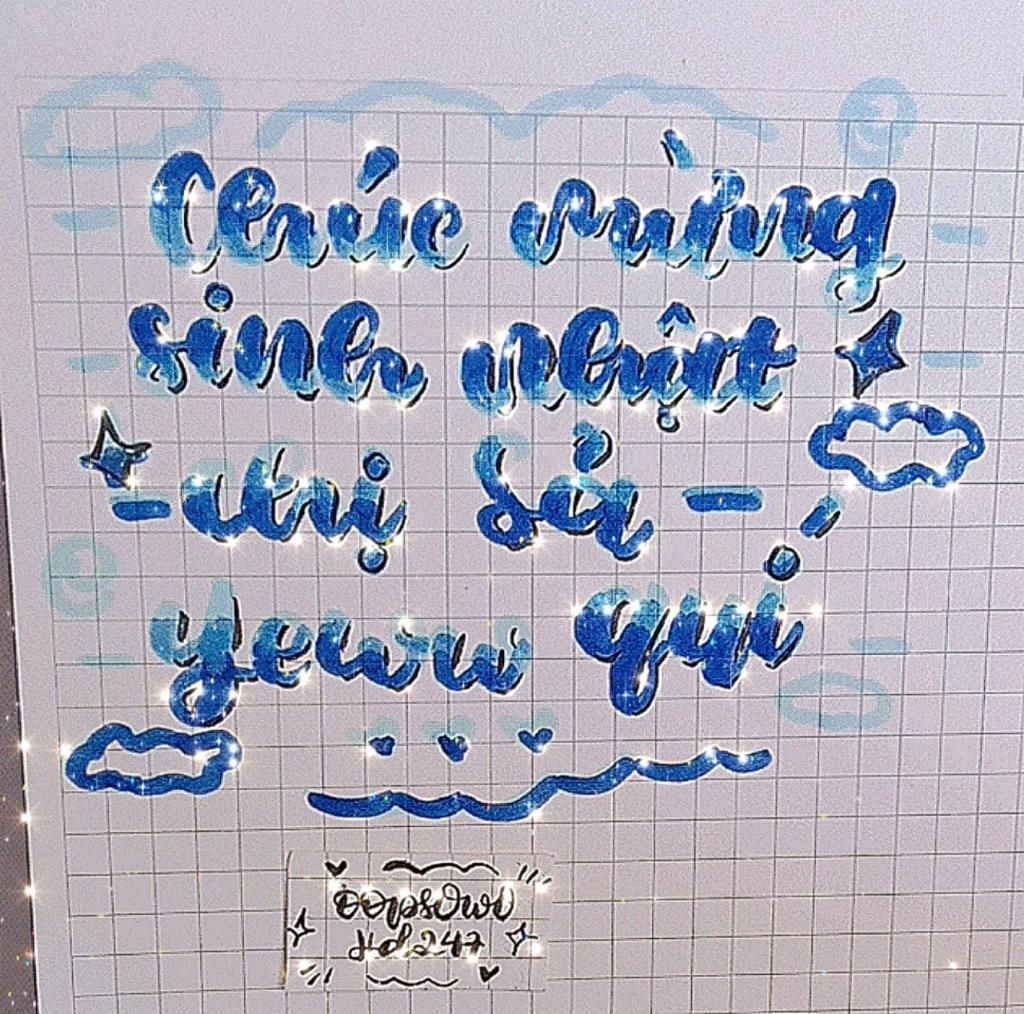 Chúc mừng
sinh nhật
- chị Sá -
yeww quí
oopsOwo
Hd247